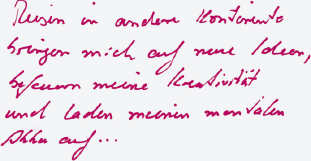 Reisen in andere Kontinente
bringen mich auf neue Ideen,
befeuern meine Kreativität
und laden meinen mentalen
Akku auf...